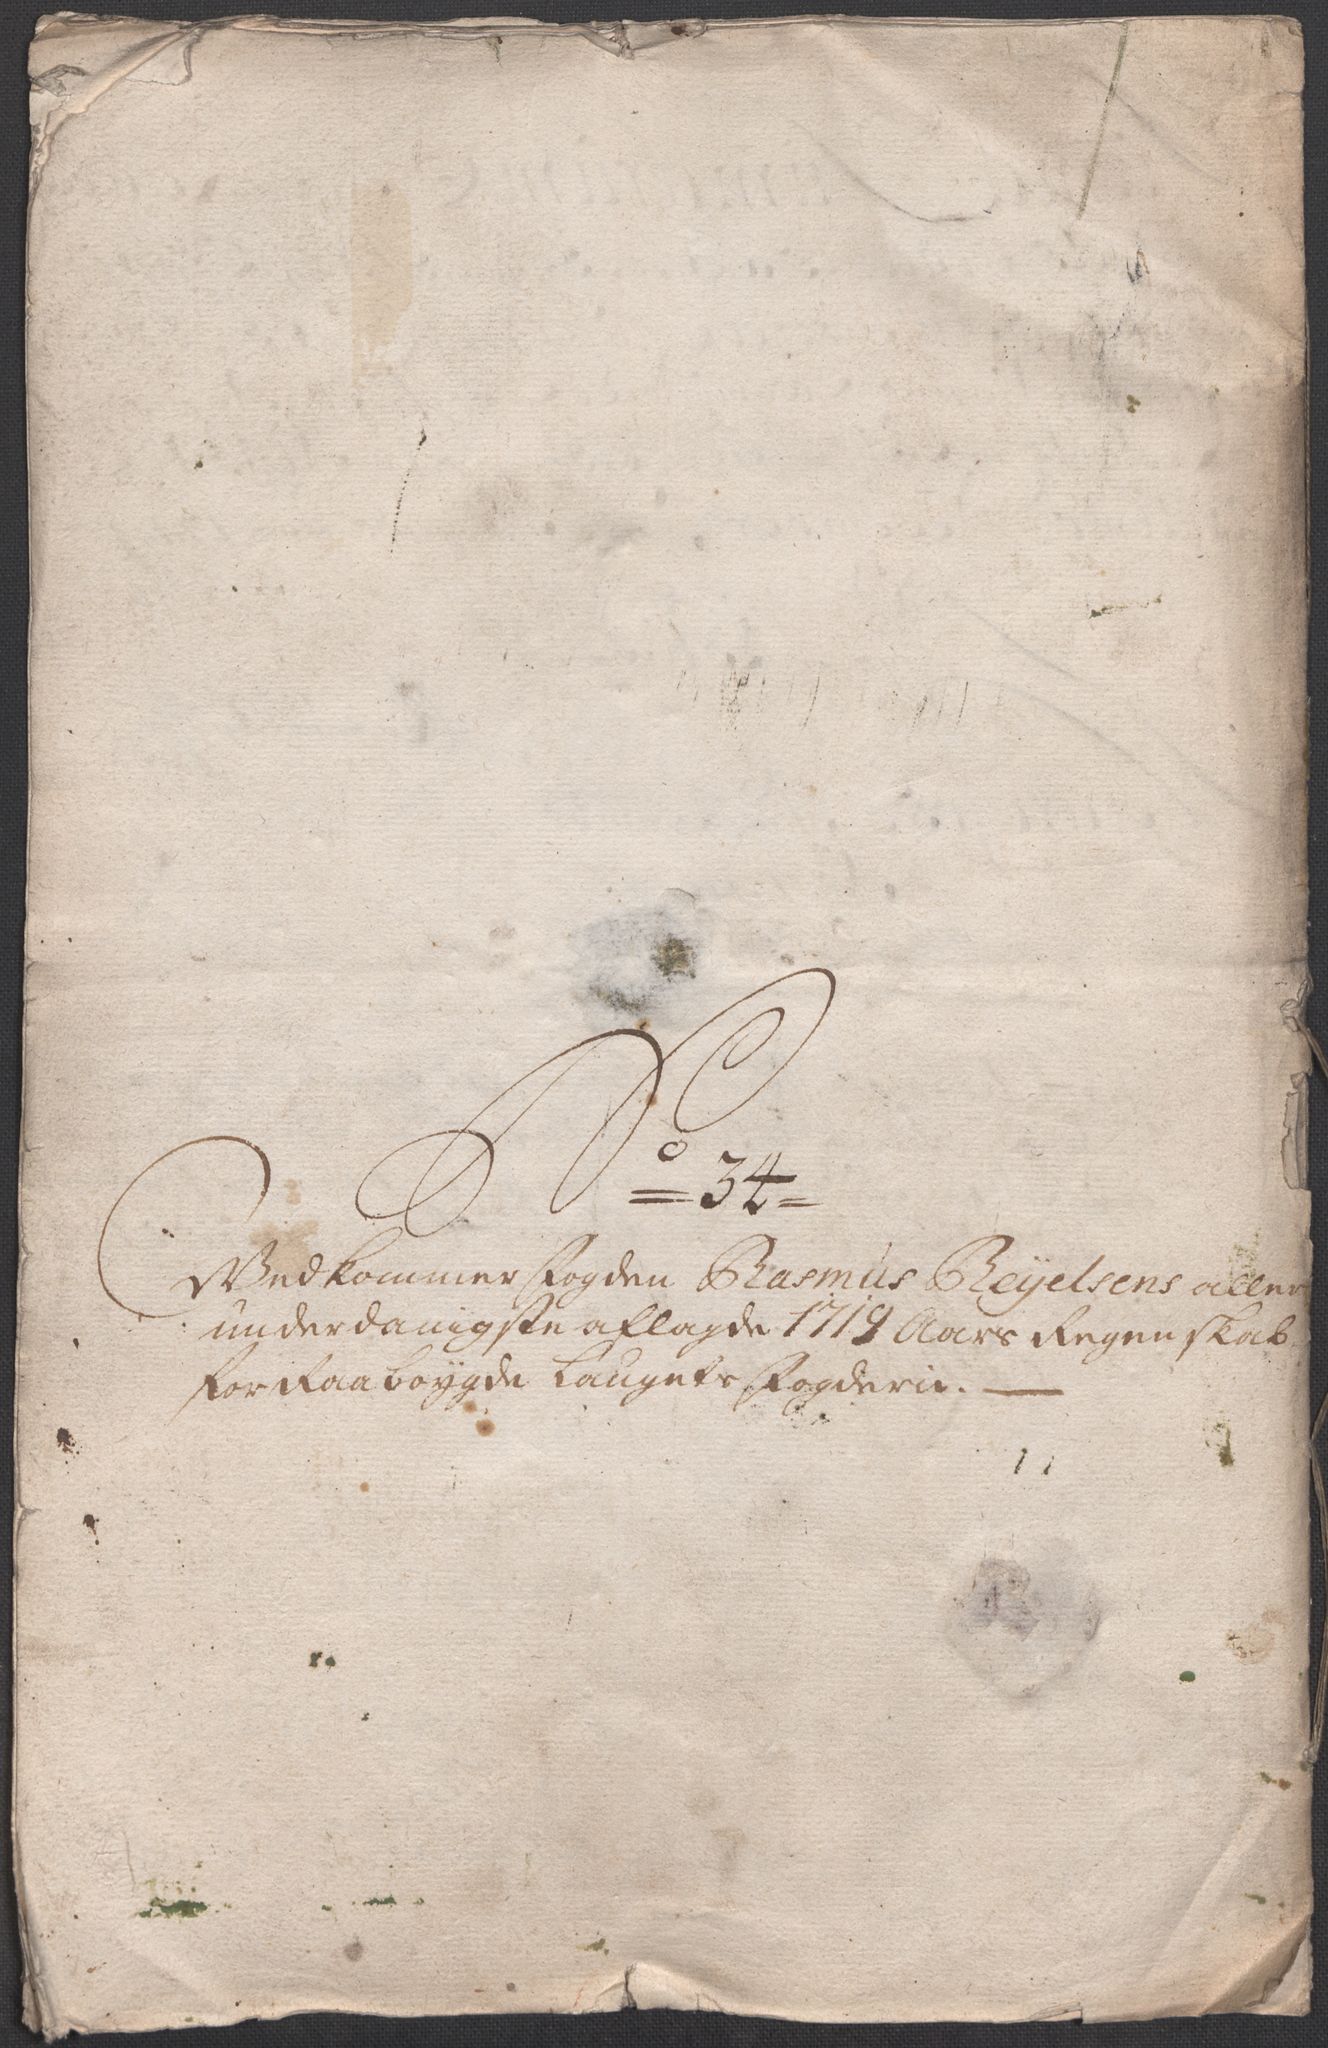 No 34
Vedkommer Fogden Rasmus Reyelsens aller
underdanigste aflagde 1719 Aars Regenskab
for Raaboygde Laugets Fogderie.